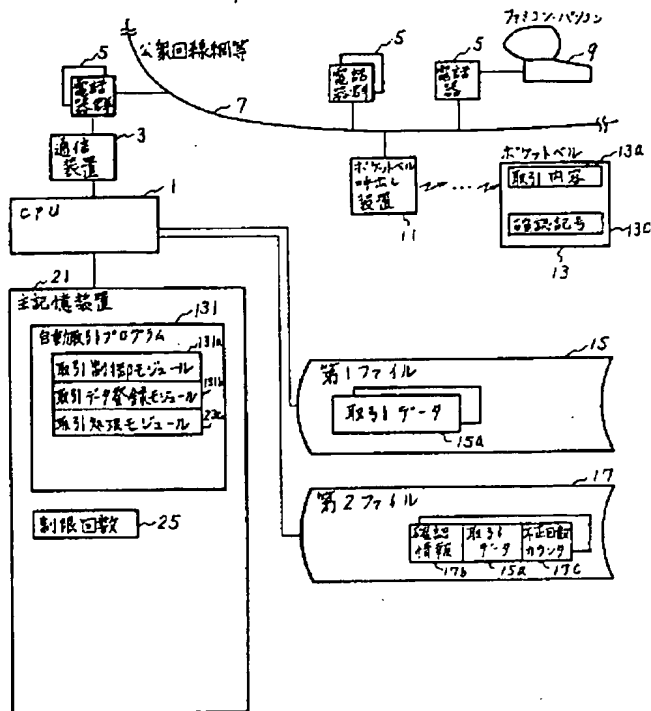 ファミコン・パソコン
公衆回線網等
5
電話器群
5
電話器群
5
電話器
9
3
7
通信装置
1
CPU
ポケットベル呼出し装置
11
ポケットベル
13a
取引内容
確認記号
13c
13
21
主記憶装置
131
自動取引プログラム
131a
取引制御モジュール
131b
取引データ登録モジュール
23c
取引処理モジュール
制限回数
25
15
第1ファイル
取引データ
15a
17
第2ファイル
確認情報
取引データ
不正回数カウンタ
17b
15a
17c